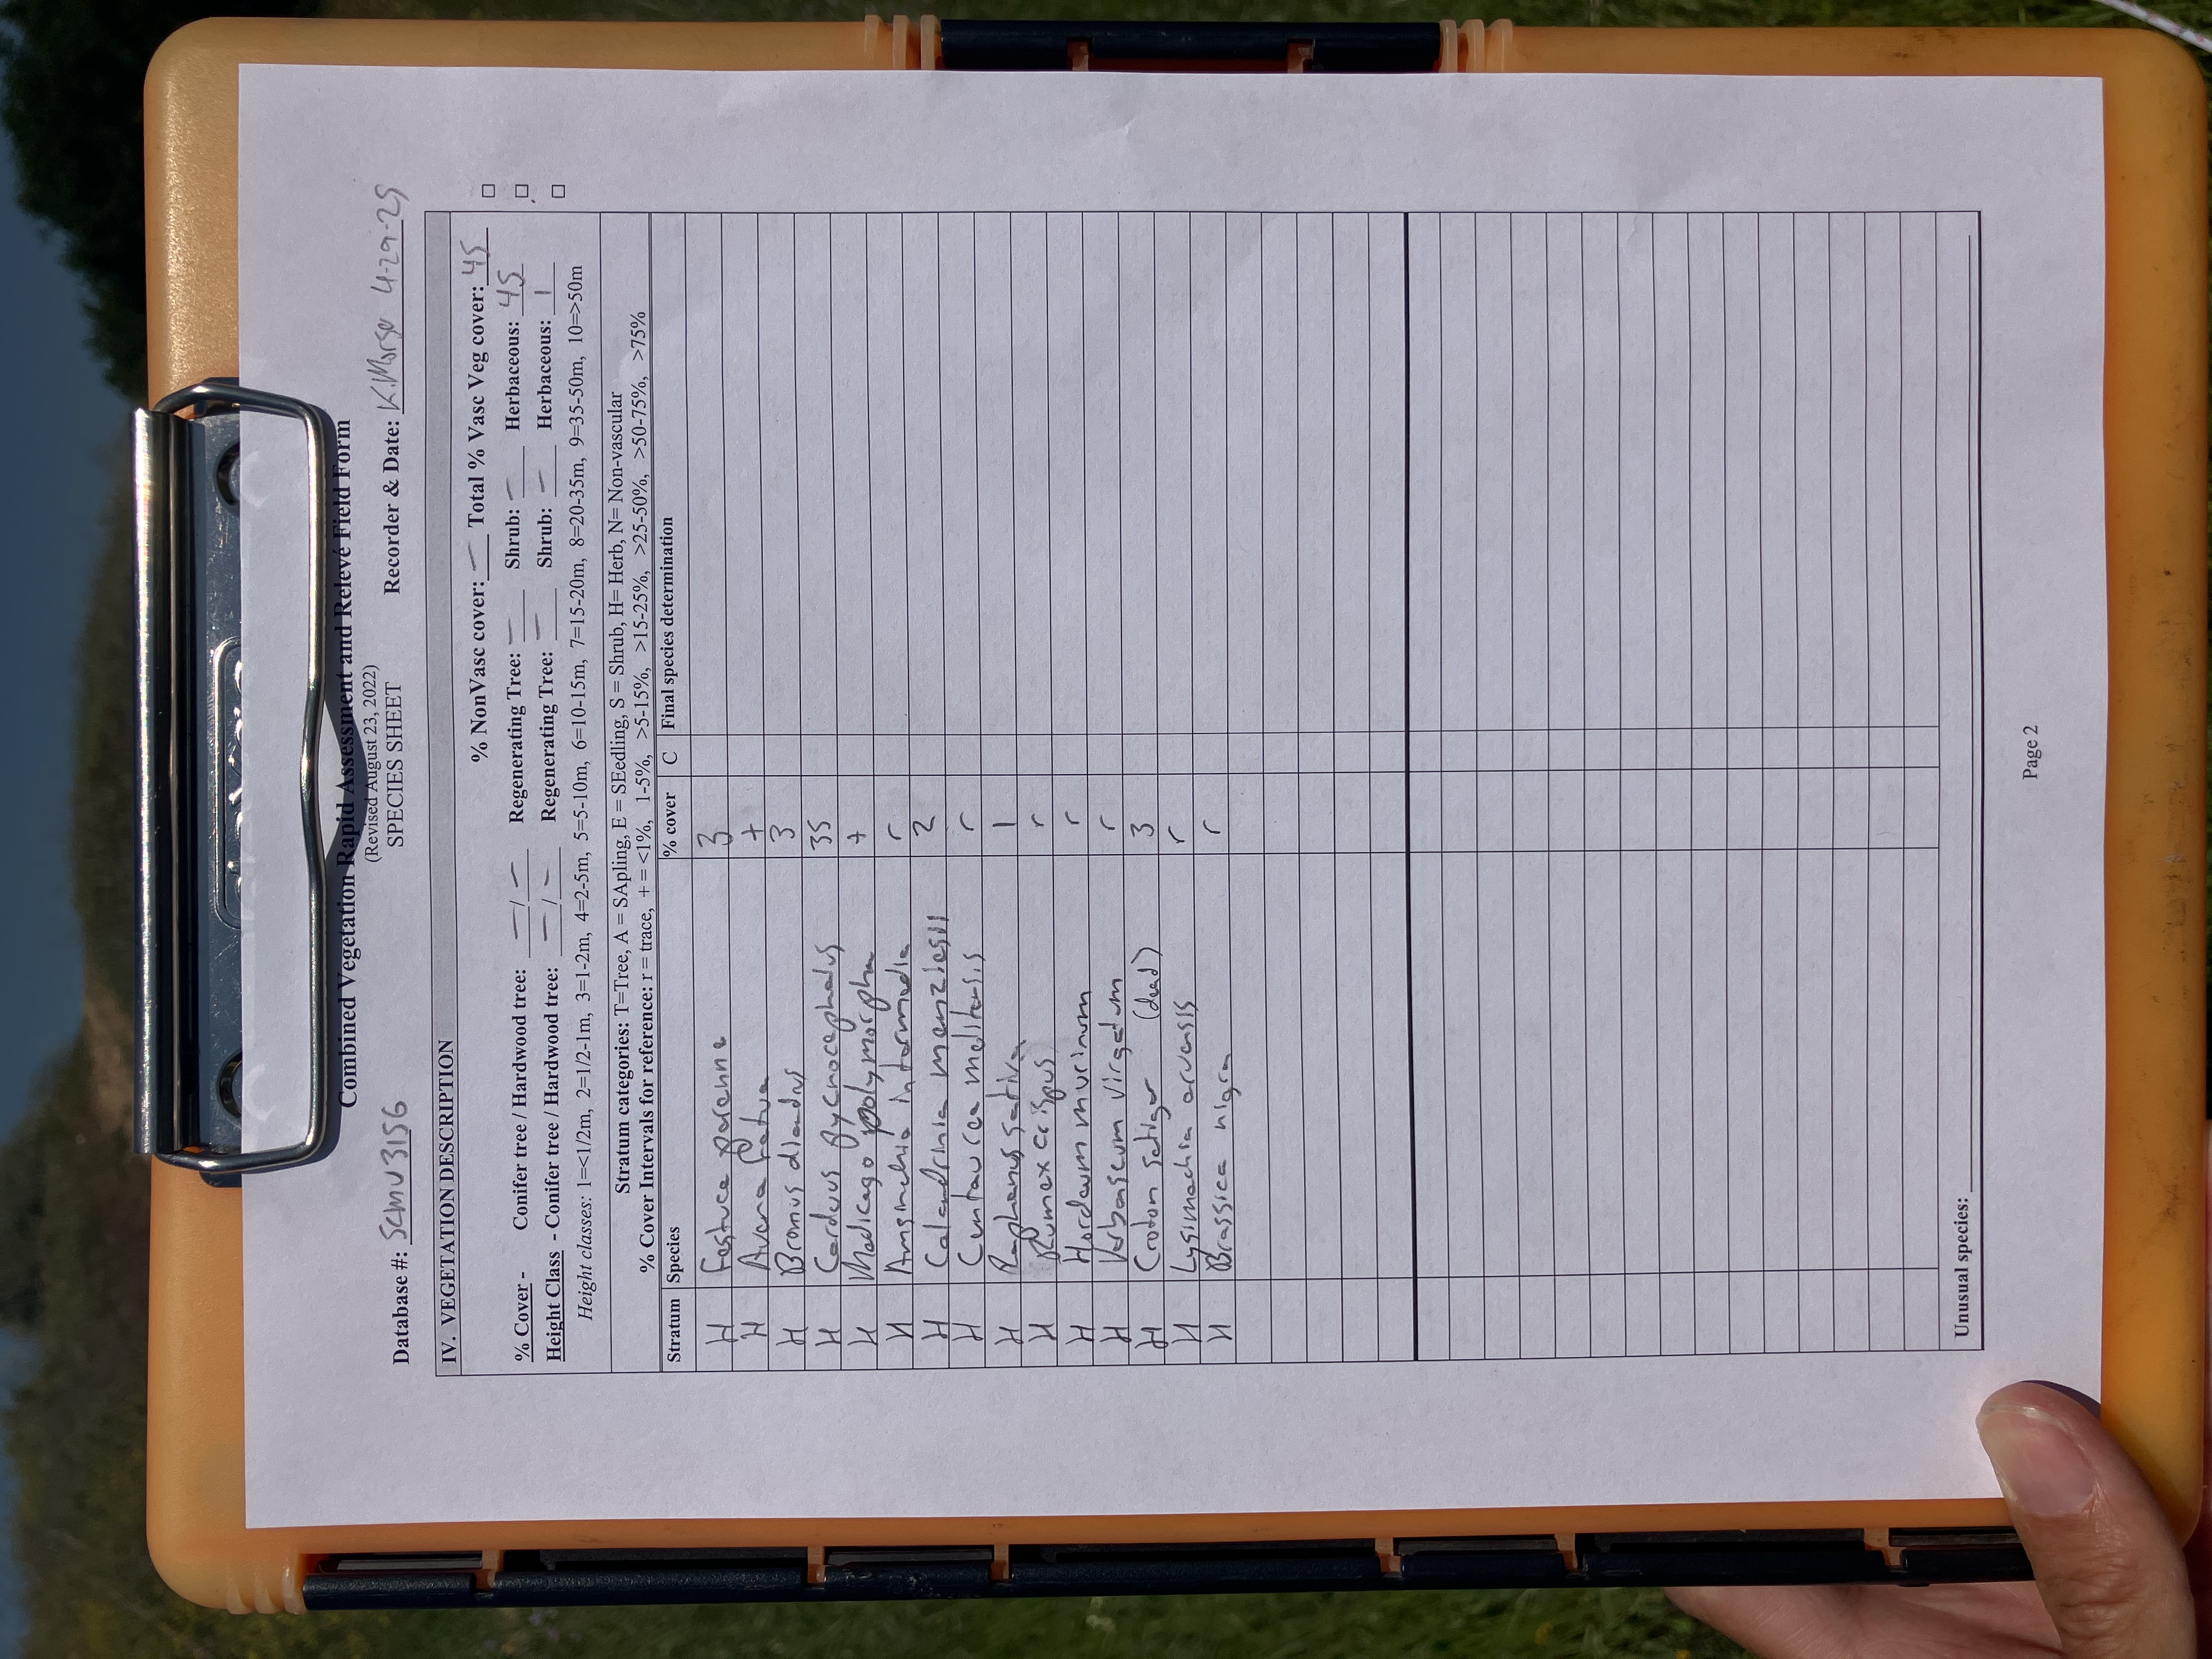 Combined Vegetation Rapid Assessment and Relevé Field Form
(Revised August 23, 2022)
SPECIES SHEET
Database #: SCMV3156 Recorder & Date: K.Morse 4-29-25
IV. VEGETATION DESCRIPTION
% NonVasc cover: — Total % Vasc Veg cover: 45 □
% Cover - Conifer tree / Hardwood tree: — / — Regenerating Tree: — Shrub: — Herbaceous: 45 □
Height Class - Conifer tree / Hardwood tree: — / — Regenerating Tree: — Shrub: — Herbaceous: 1 □
Height classes: 1=<1/2m, 2=1/2-1m, 3=1-2m, 4=2-5m, 5=5-10m, 6=10-15m, 7=15-20m, 8=20-35m, 9=35-50m, 10=>50m
Stratum categories: T=Tree, A = SApling, E = SEedling, S = Shrub, H= Herb, N= Non-vascular
% Cover Intervals for reference: r = trace, + = <1%, 1-5%, >5-15%, >15-25%, >25-50%, >50-75%, >75%
Stratum Species % cover C Final species determination
H Festuca perenne 3
H Avena fatua +
H Bromus diandrus 3
H Carduus pycnocephalus 35
H Medicago polymorpha +
H Amsinckia intermedia r
H Calandrinia menziesii 2
H Centaurea melitensis r
H Raphanus sativa 1
H Rumex crispus r
H Hordeum murinum r
H Verbascum virgatum r
H Croton setiger (dead) 3
H Lysimachia arvensis r
H Brassica nigra r
Unusual species:
Page 2